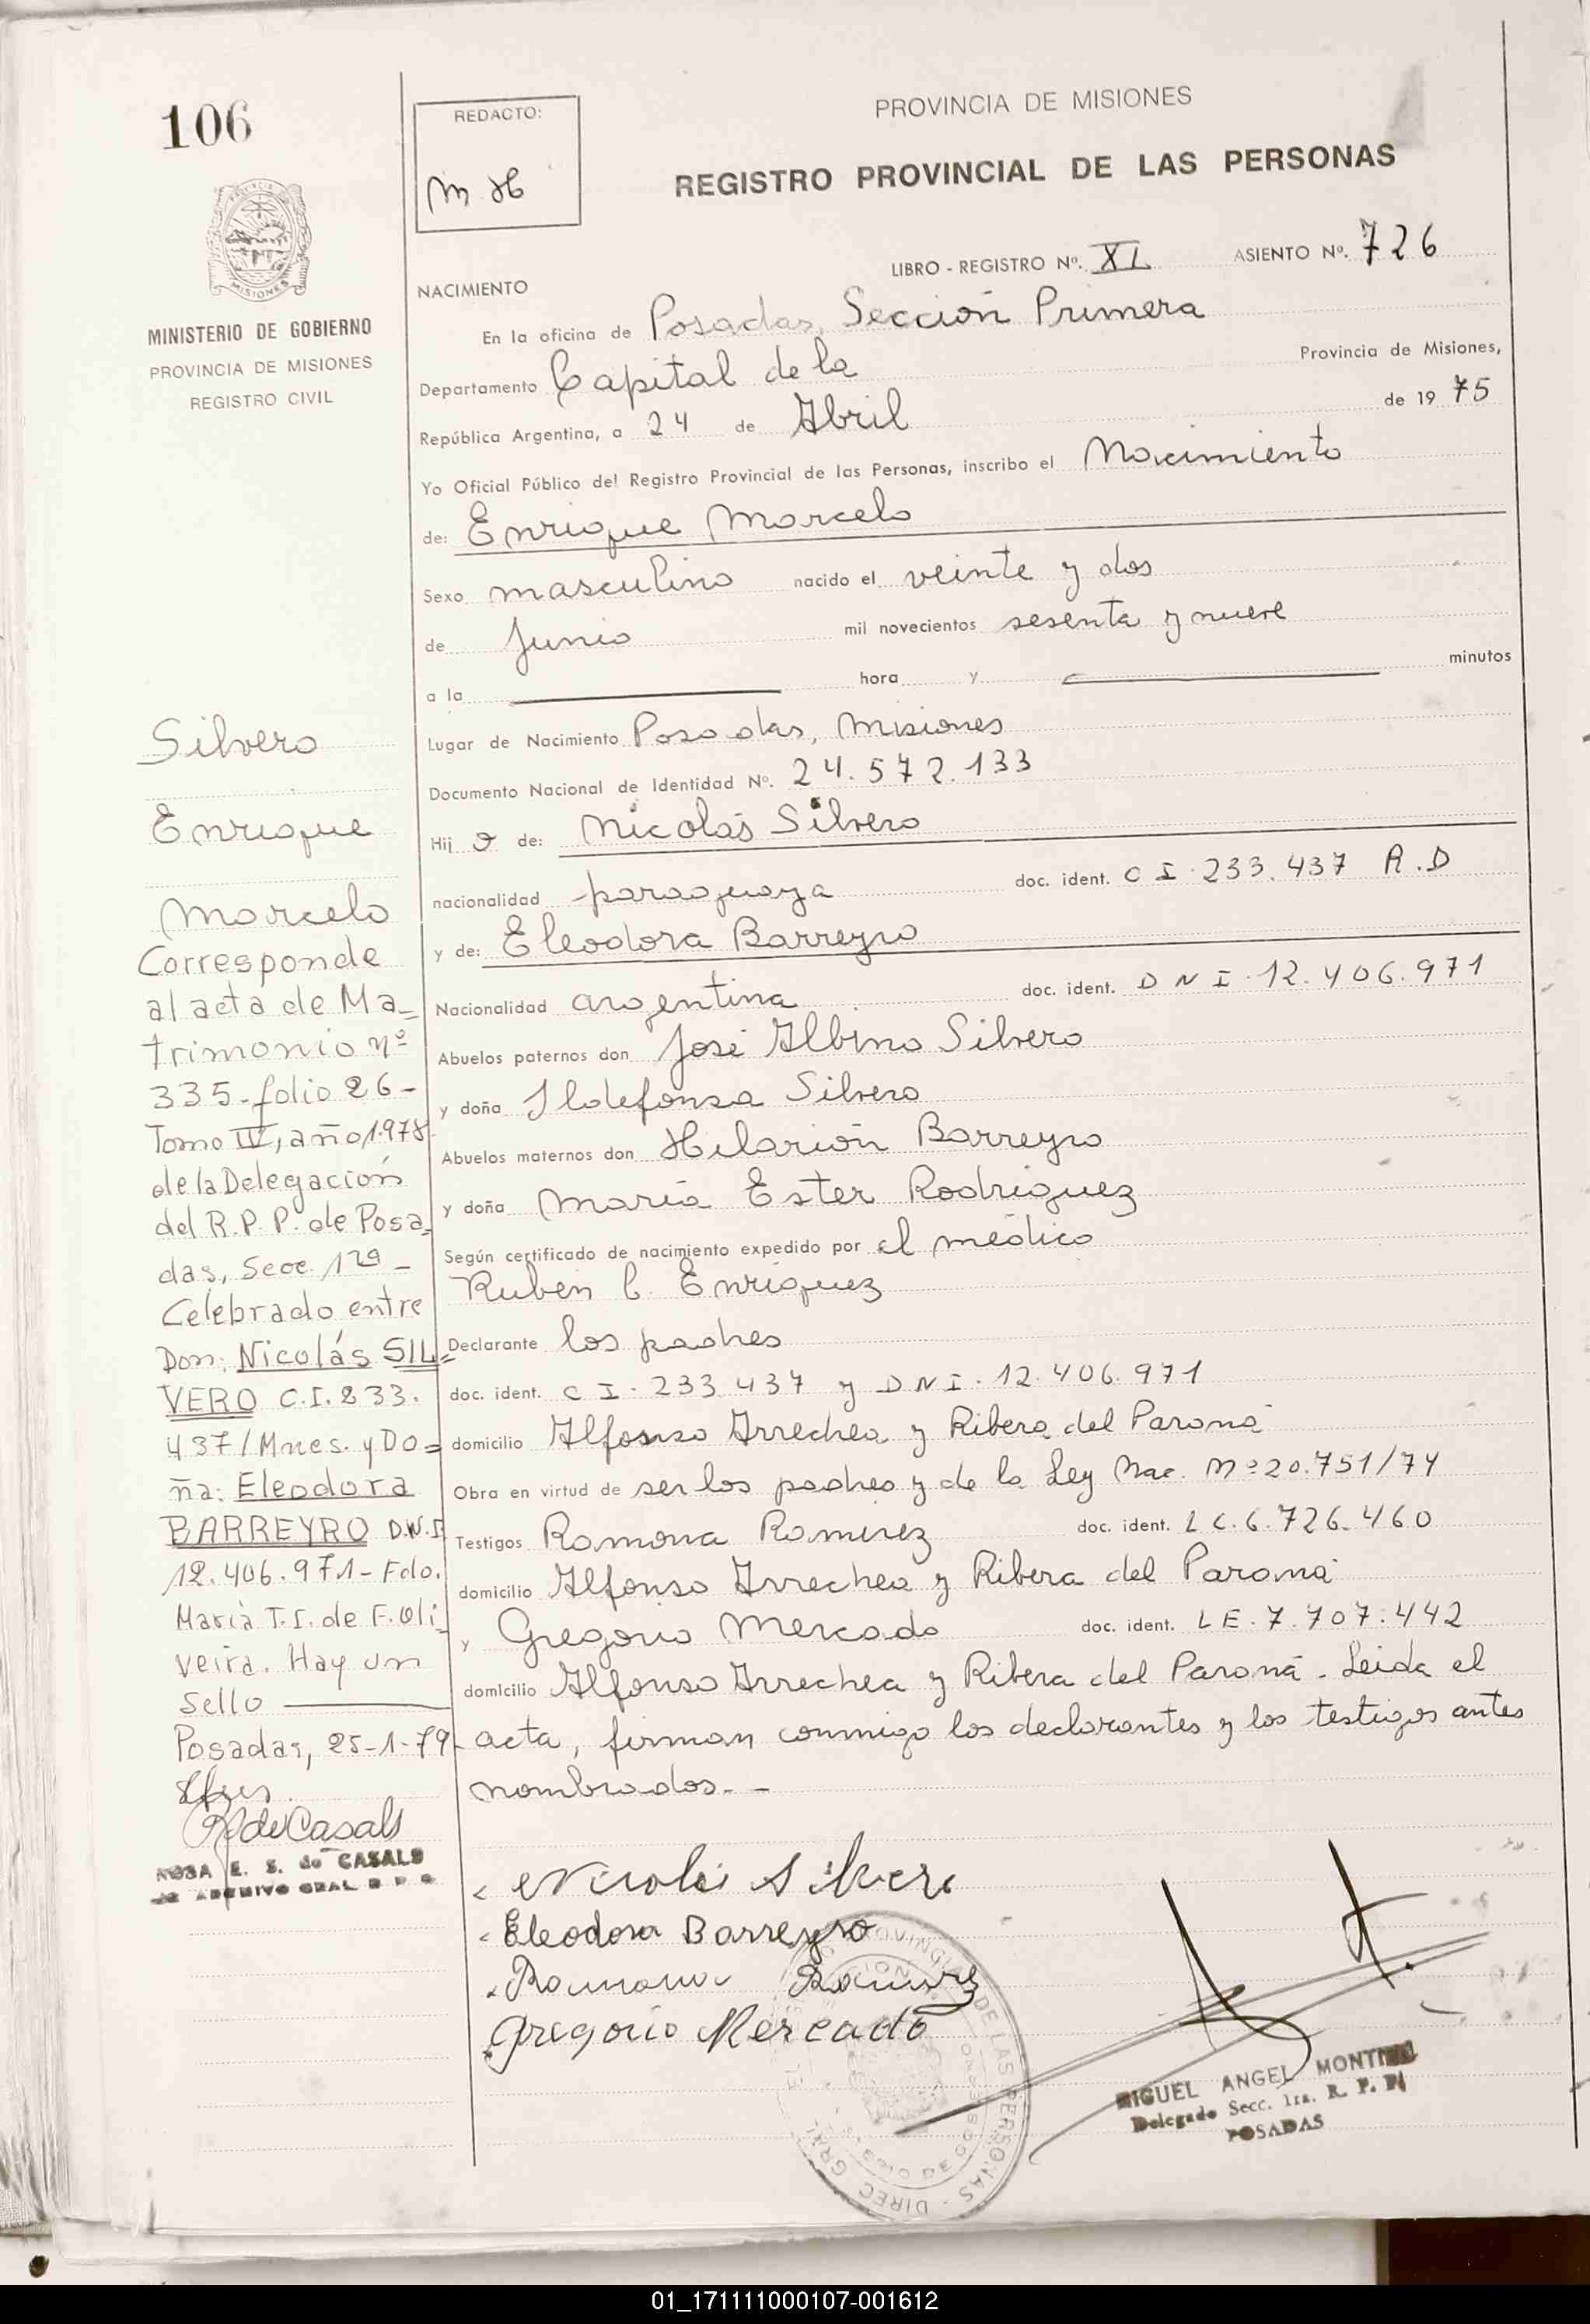 106
REDACTO:
M. H
PROVINCIA DE MISIONES
REGISTRO PROVINCIAL DE LAS PERSONAS
PROVINCIA
MISIONES
MINISTERIO DE GOBIERNO
PROVINCIA DE MISIONES
REGISTRO CIVIL
LIBRO - REGISTRO Nº. XI ASIENTO Nº. 726
NACIMIENTO
En la oficina de Posadas, Sección Primera
Departamento Capital de la Provincia de Misiones,
República Argentina, a 24 de Abril de 19 75
Yo Oficial Público del Registro Provincial de las Personas, inscribo el Nacimiento
de: Enrique Marcelo
Sexo masculino nacido el veinte y dos
de Junio mil novecientos sesenta y nueve
a la hora y minutos
Lugar de Nacimiento Posadas, Misiones
Documento Nacional de Identidad Nº. 24.572.133
Hij o de: Nicolás Silvero
nacionalidad paraguaya doc. ident. C I. 233.437 R.D
y de: Eleodora Barreyro
Nacionalidad argentina doc. ident. D N I. 12.406.971
Abuelos paternos don José Albino Silvero
y doña Ildefonsa Silvero
Abuelos maternos don Hilarión Barreyro
y doña María Ester Rodríguez
Según certificado de nacimiento expedido por el médico
Ruben C. Enriquez
Declarante los padres
doc. ident. C I. 233.437 y D N I. 12.406.971
domicilio Alfonso Arrechea y Ribera del Paraná
Obra en virtud de ser los padres y de la Ley Nac. Nº 20.751/74
Testigos Ramona Ramirez doc. ident. L C. 6.726.460
domicilio Alfonso Arrechea y Ribera del Paraná
y Gregorio Mercado doc. ident. L E. 7.707.442
domicilio Alfonso Arrechea y Ribera del Paraná. Leida el
acta, firman conmigo los declarantes y los testigos antes
nombrados.-
Silvero
Enrique
Marcelo
Corresponde
al acta de Ma-
trimonio nº
335-folio 26-
Tomo IV, año 1.978
de la Delegación
del R.P.P. de Posa-
das, Secc. 1ra -
Celebrado entre
Don: Nicolás SIL=
VERO C.I. 233.
437/Mnes. y Do=
ña: Eleodora
BARREYRO D.N.I
12.406.971- Fdo.
María T. I. de F. Oli_
veira. Hay un
Sello
Posadas, 25-1-79-
R de Casals
ROSA E. S. de CASALS
ARCHIVO GRAL R P P
Nicolás Silvero
Eleodora Barreyro
Ramona Ramirez
Gregorio Mercado
MIGUEL ANGEL
Delegado Secc. 1ra. R. P. P.
POSADAS
01_171111000107-001612